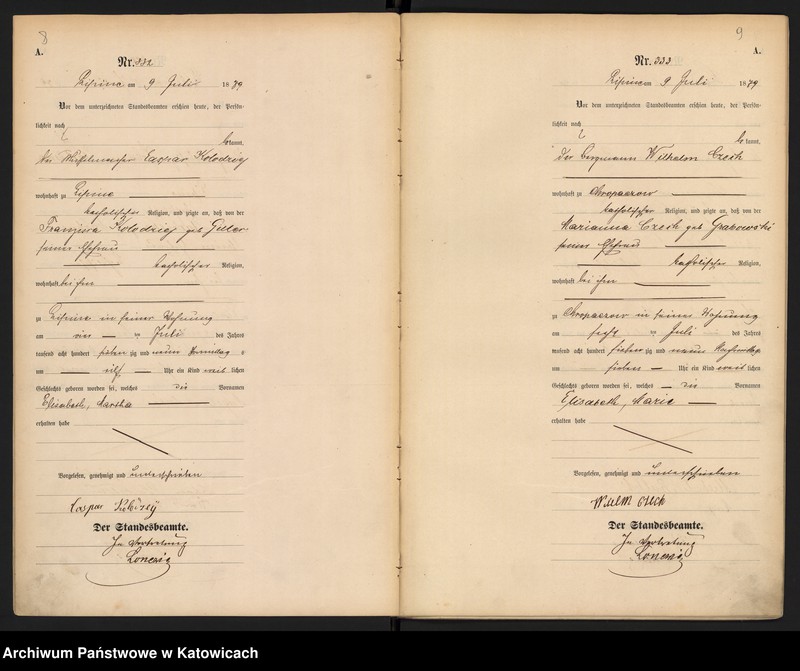 8
A.
Nr. 332
Lipine am 9 Juli 1879
Vor dem unterzeichneten Standesbeamten erschien heute, der Persön-
lichkeit nach
kannt,
der Kolodziej
wohnhaft zu Lipine
katholischer Religion, und zeigte an, daß von der
Kolodziej geb
seiner Ehefrau
katholischer Religion,
wohnhaft bei ihm
zu Lipine in seiner Wohnung
am vier ten Juli des Jahres
tausend acht hundert sieben zig und neun Vormittag s
um elf Uhr ein Kind weib lichen
Geschlechts geboren worden sei, welches die Vornamen
Elisabeth, Martha
erhalten habe
Vorgelesen, genehmigt und unterschrieben
Kaspar
Der Standesbeamte.
In Vertretung
9
A.
Nr. 333
Lipine am 9 Juli 1879
Vor dem unterzeichneten Standesbeamten erschien heute, der Persön-
lichkeit nach
kannt,
der Bergmann Wilhelm Czech
wohnhaft zu Chropaczow
katholischer Religion, und zeigte an, daß von der
Marianna Czech geb Grabowski
seiner Ehefrau
katholischer Religion,
wohnhaft bei ihm
zu Chropaczow in seiner Wohnung
am sechs ten Juli des Jahres
tausend acht hundert sieben zig und neun Nachmittag
um sieben Uhr ein Kind weib lichen
Geschlechts geboren worden sei, welches die Vornamen
Elisabeth, Marie
erhalten habe
Vorgelesen, genehmigt und unterschrieben
Wilhelm Czech
Der Standesbeamte.
In Vertretung
Archiwum Państwowe w Katowicach